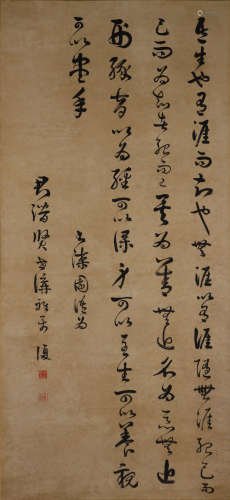 吾生也有涯而知也無涯以有涯隨無涯殆已
已而為知者殆而已矣為善無近名為惡無近
刑緣督以為經可以保身可以全生可以養親
可以盡年
漆園語為
君潛賢世講 復